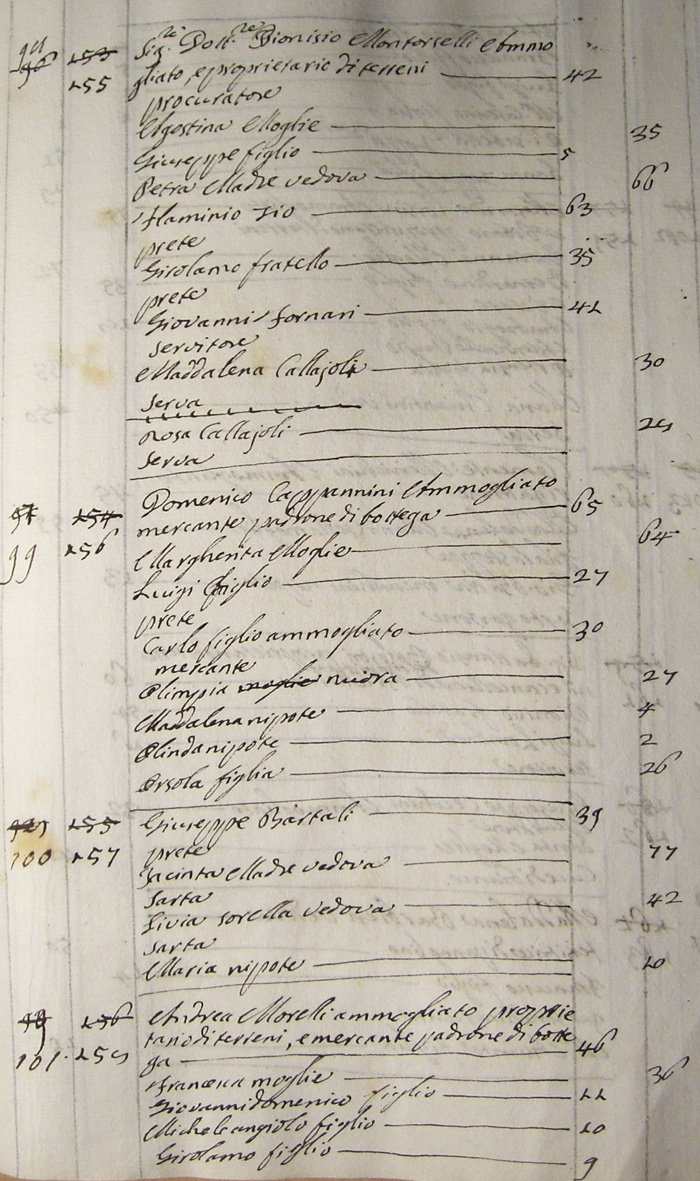 Sig.re Dott.re Dionisio Montorselli Ammo
155 gliato, e proprietario di terreni 42
procuratore
Agostina Moglie 35
Giuseppe figlio 5
Petra Madre vedova 66
Flaminio Zio 63
prete
Girolamo fratello 35
prete
Giovanni Fornari 41
servitore
Maddalena Callajoli 30
Serva
Rosa Callajoli
Serva
154 Domenico Cappannini Ammogliato
99 156 mercante padrone di bottega 65
Margherita Moglie 64
Luigi figlio 27
prete
Carlo figlio ammogliato 30
mercante
Olimpia moglie nuora 27
Maddalena nipote 4
Olinda nipote 2
Orsola figlia 26
155 Giuseppe Bartali 39
100 157 prete
Jacinta Madre vedova 77
sarta
Livia sorella vedova 42
sarta
Maria nipote 10
156 Andrea Morelli ammogliato proprie
tario di terreni, e mercante padrone di botte
101. ga 46
Francesca moglie 36
Giovanni domenico figlio 11
Michelangiolo figlio 10
Girolamo figlio 9